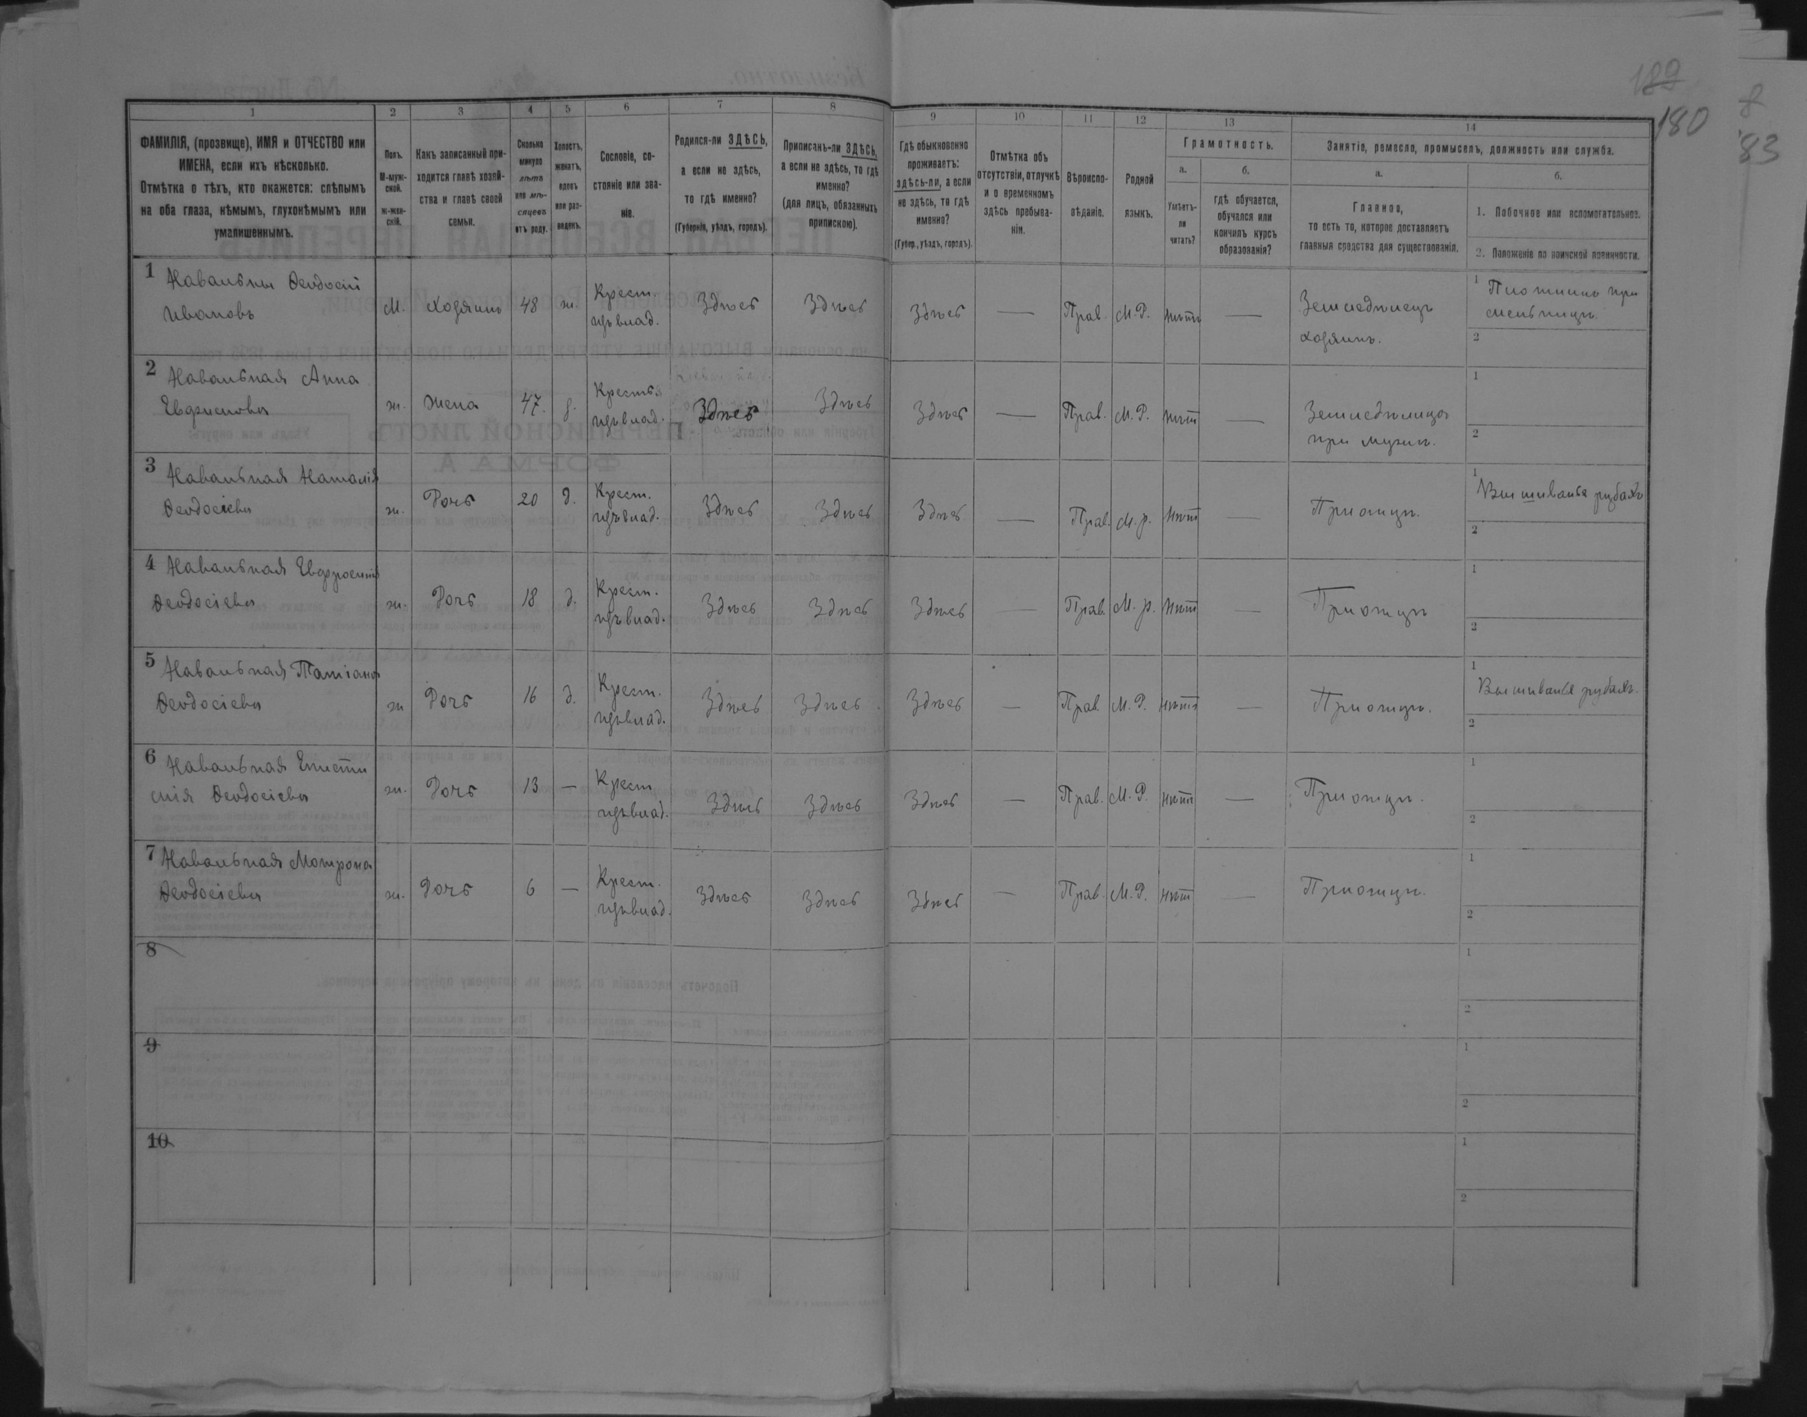 189
180
8
83
1
2
3
4
5
6
7
8
9
10
11
12
13
14
ФАМИЛІЯ, (прозвище), ИМЯ и ОТЧЕСТВО или
ИМЕНА, если ихъ нѣсколько.
Отмѣтка о тѣхъ, кто окажется: слѣпымъ
на оба глаза, нѣмымъ, глухонѣмымъ или
умалишеннымъ.
Полъ.
М-муж-
ской.
ж-жен-
скій.
Какъ записанный при-
ходится главѣ хозяй-
ства и главѣ своей
семьи.
Сколько
минуло
лѣтъ
или мѣ-
сяцевъ
отъ роду.
Холостъ,
женатъ,
вдовъ
или раз-
веденъ.
Сословіе, со-
стояніе или зва-
ніе.
Родился-ли ЗДѢСЬ,
а если не здѣсь,
то гдѣ именно?
(Губернія, уѣздъ, городъ).
Приписанъ-ли ЗДѢСЬ,
а если не здѣсь, то гдѣ
именно?
(для лицъ, обязанныхъ
припискою).
Гдѣ обыкновенно
проживаетъ:
здѣсь-ли, а если
не здѣсь, то гдѣ
именно?
(Губер., уѣздъ, городъ).
Отмѣтка объ
отсутствіи, отлучкѣ
и о временномъ
здѣсь пребыва-
ніи.
Вѣроиспо-
вѣданіе.
Родной
языкъ.
Грамотность.
а.
Умѣетъ-
ли
читать?
б.
гдѣ обучается,
обучался или
кончилъ курсъ
образованія?
Занятіе, ремесло, промыселъ, должность или служба.
а.
Главное,
то есть то, которое доставляетъ
главныя средства для существованія.
б.
1. Побочное или вспомогательное.
2. Положеніе по воинской повинности.
1 Навальны Ѳеодосій
Ивановъ
М. Хозяинъ 48 ж. Крест. Здѣсь Здѣсь Здѣсь — Прав. М.Р. нѣтъ — Земледѣлецъ
хозяинъ.
1 Плотникъ при
мельницѣ
2
2 Навальная Анна
ж. Жена 47. Здѣсь Здѣсь Здѣсь — Прав. М.Р. нѣтъ — Земледѣлица
при мужѣ.
1
2
3 Навальная Наталія
Ѳеодосіева
ж. Дочь 20 д. Крест. Здѣсь Здѣсь Здѣсь — Прав. М.р. нѣтъ — При отцѣ.
1 Вышиванье рубахъ
2
4 Навальная Евфросинія
Ѳеодосіева
ж. Дочь 18 д. Крест. Здѣсь Здѣсь Здѣсь — Прав. М.р. нѣтъ — При отцѣ
1
2
5 Навальная Татіана
Ѳеодосіева
ж Дочь 16 д. Крест. Здѣсь Здѣсь Здѣсь — Прав М.Р. нѣтъ — При отцѣ.
1 Вышиванье рубахъ.
2
6 Навальная
Ѳеодосіева
ж. Дочь 13 — Крест. Здѣсь Здѣсь Здѣсь — Прав. М.Р. нѣтъ — При отцѣ.
1
2
7 Навальная Мотрона
Ѳеодосіева
ж. Дочь 6 — Крест. Здѣсь Здѣсь Здѣсь — Прав. М.Р. нѣтъ — При отцѣ.
1
2
8
1
2
9
1
2
10
1
2